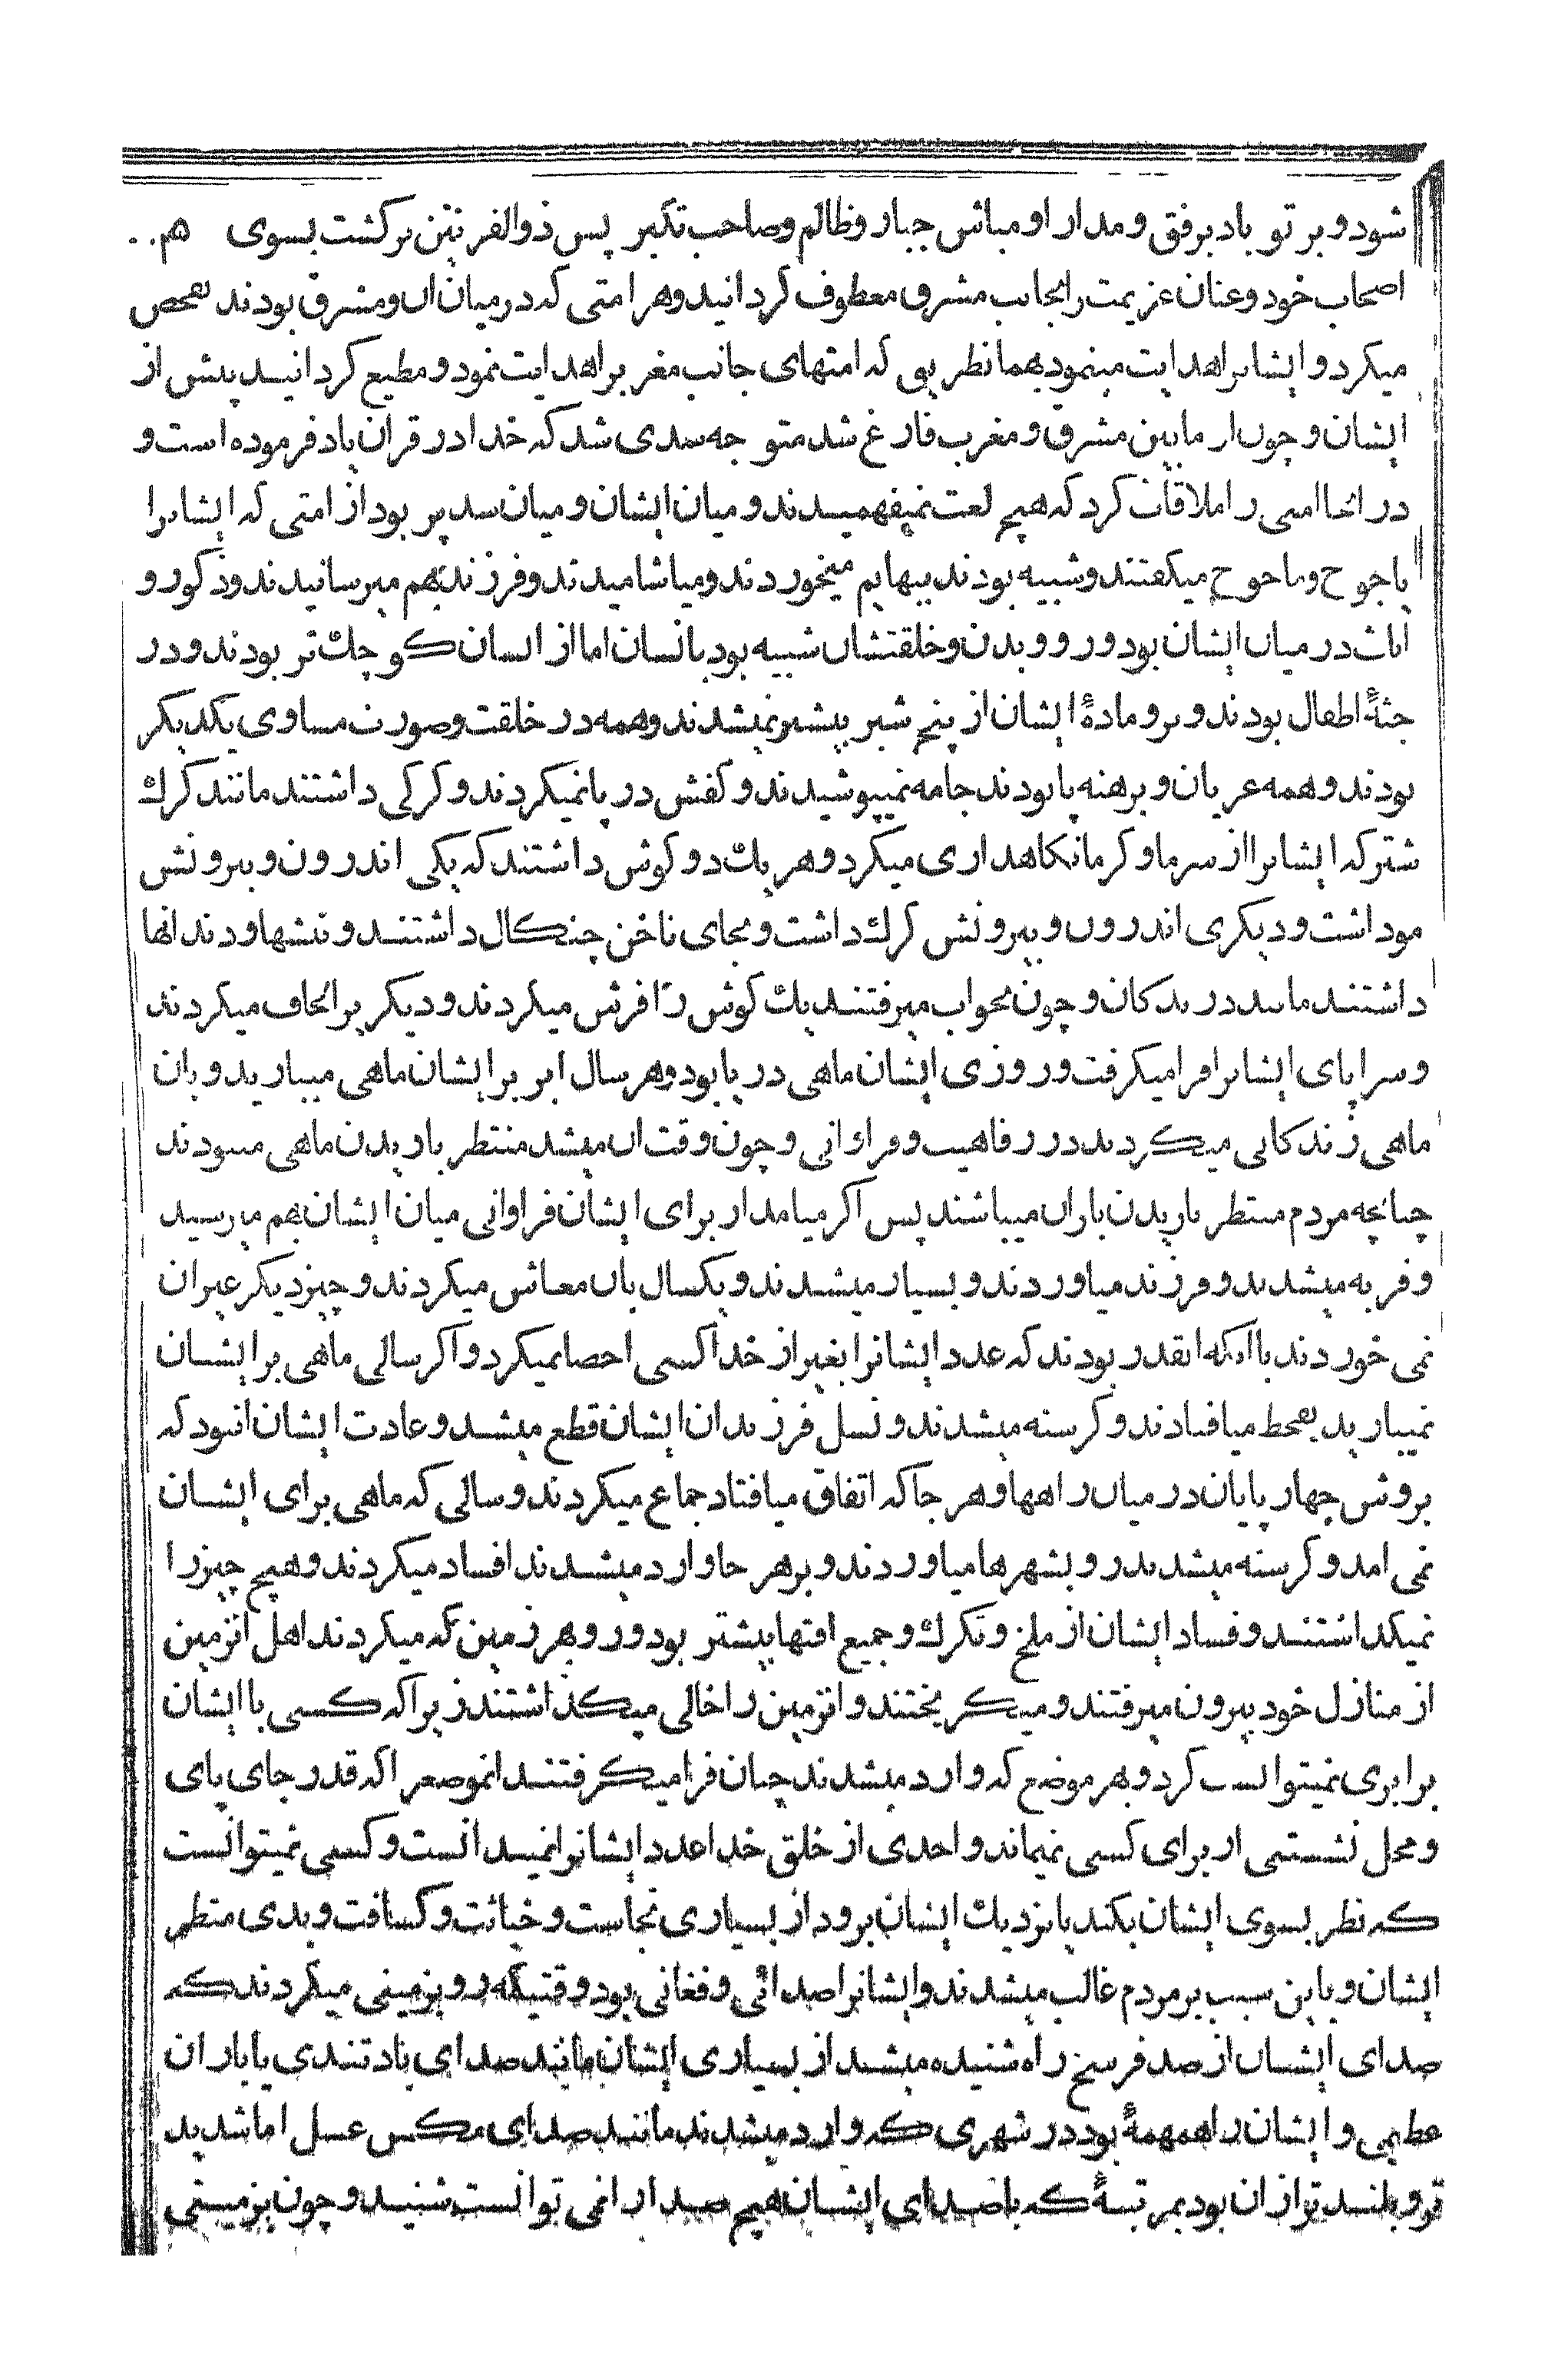 شود و بر تو باد برفق و مدارا و مباش جبار و ظالم و صاحب تکبر پس ذوالقرنین برگشت بسوی
اصحاب خود و عنان عزیمت را بجانب مشرق معطوف گردانید و هر امتی که در میان ان و مشرق بودند تفحص
میکرد و ایشانرا هدایت مینمود بهمانطریی که امتهای جانب مغرب را هدایت نمود و مطیع گردانید پیش از
ایشان و چون از مابین مشرق و مغرب فارغ شد متوجه سدی شد که خدا در قران یاد فرموده است و
در انجا امتی را ملاقات کرد که هیچ لغت نمیفهمیدند و میان ایشان و میان سد پر بود از امتی که ایشانرا
یاجوج و ماجوج میگفتند و شبیه بودند ببهایم میخوردند و میاشامیدند و فرزند بهم میرسانیدند و ذکور و
اناث در میان ایشان بود و رو و بدن و خلقتشان شبیه بود بانسان اما از انسان کوچك تر بودند و در
جثهٔ اطفال بودند و نر و مادهٔ ایشان از پنج شبر بیشتر نمیشدند و همه در خلقت و صورت مساوی یکدیگر
بودند و همه عریان و برهنه پا بودند جامه نمیپوشیدند و کفش در پا نمیکردند و کرکی داشتند مانند کرك
شتر که ایشانرا از سرما و گرما نگاهداری میکرد و هر یك دو گوش داشتند که یکی اندرون و بیرونش
مو داشت و دیگری اندرون و بیرونش کرك داشت و بجای ناخن چنگال داشتند و نیشها و دندانها
داشتند مانند درندگان و چون بخواب میرفتند یك گوش را فرش میکردند و دیگریرا لحاف میکردند
و سراپای ایشانرا فرا میگرفت و روزی ایشان ماهی دریا بود و هر سال ابر بر ایشان ماهی میبارید و بان
ماهی زندگانی میکردند در رفاهیت و فراوانی و چون وقت ان میشد منتظر باریدن ماهی میبودند
چنانچه مردم منتظر باریدن باران میباشند پس اگر میامد از برای ایشان فراوانی میان ایشان بهم میرسید
و فربه میشدند و فرزند میاوردند و بسیار میشدند و یکسال بان معاش میکردند و چیز دیگر غیر ان
نمی خوردند با انکه انقدر بودند که عدد ایشانرا بغیر از خدا کسی احصا نمیکرد و اگر سالی ماهی بر ایشان
نمیبارید بقحط میافتادند و گرسنه میشدند و نسل فرزندان ایشان قطع میشد و عادت ایشان انبود که
بروش چهار پایان در میان راهها و هر جا که اتفاق میافتاد جماع میکردند و سالی که ماهی برای ایشان
نمی امد و گرسنه میشدند رو بشهرها میاوردند و بر هر جا وارد میشدند افساد میکردند و هیچ چیز را
نمیگذاشتند و فساد ایشان از ملخ و تگرك و جمیع افتها بیشتر بود و رو بهر زمین که میکردند اهل انزمین
از منازل خود بیرون میرفتند و میگریختند و انزمین را خالی میگذاشتند زیرا که کسی با ایشان
برابری نمیتوانست کرد و بهر موضع که وارد میشدند چنان فرا میگرفتند انموضعرا که قدر جای پای
و محل نشستنی از برای کسی نمیماند و احدی از خلق خدا عدد ایشانرا نمیدانست و کسی نمیتوانست
که نظر بسوی ایشان بکند یا نزدیك ایشان برود از بسیاری نجاست و خباثت و کسافت و بدی منظر
ایشان و باین سبب بر مردم غالب میشدند و ایشانرا صدائی و فغانی بود وقتیکه رو بزمینی میکردند که
صدای ایشان از صد فرسخ راه شنیده میشد از بسیاری ایشان مانند صدای باد تندی یا باران
عظیمی و ایشان را همهمهٔ بود در شهری که وارد میشدند مانند صدای مگس عسل اما شدید
تر و بلند تر از ان بود بمرتبهٔ که با صدای ایشان هیچ صدا را نمی توانست شنید و چون بزمینی